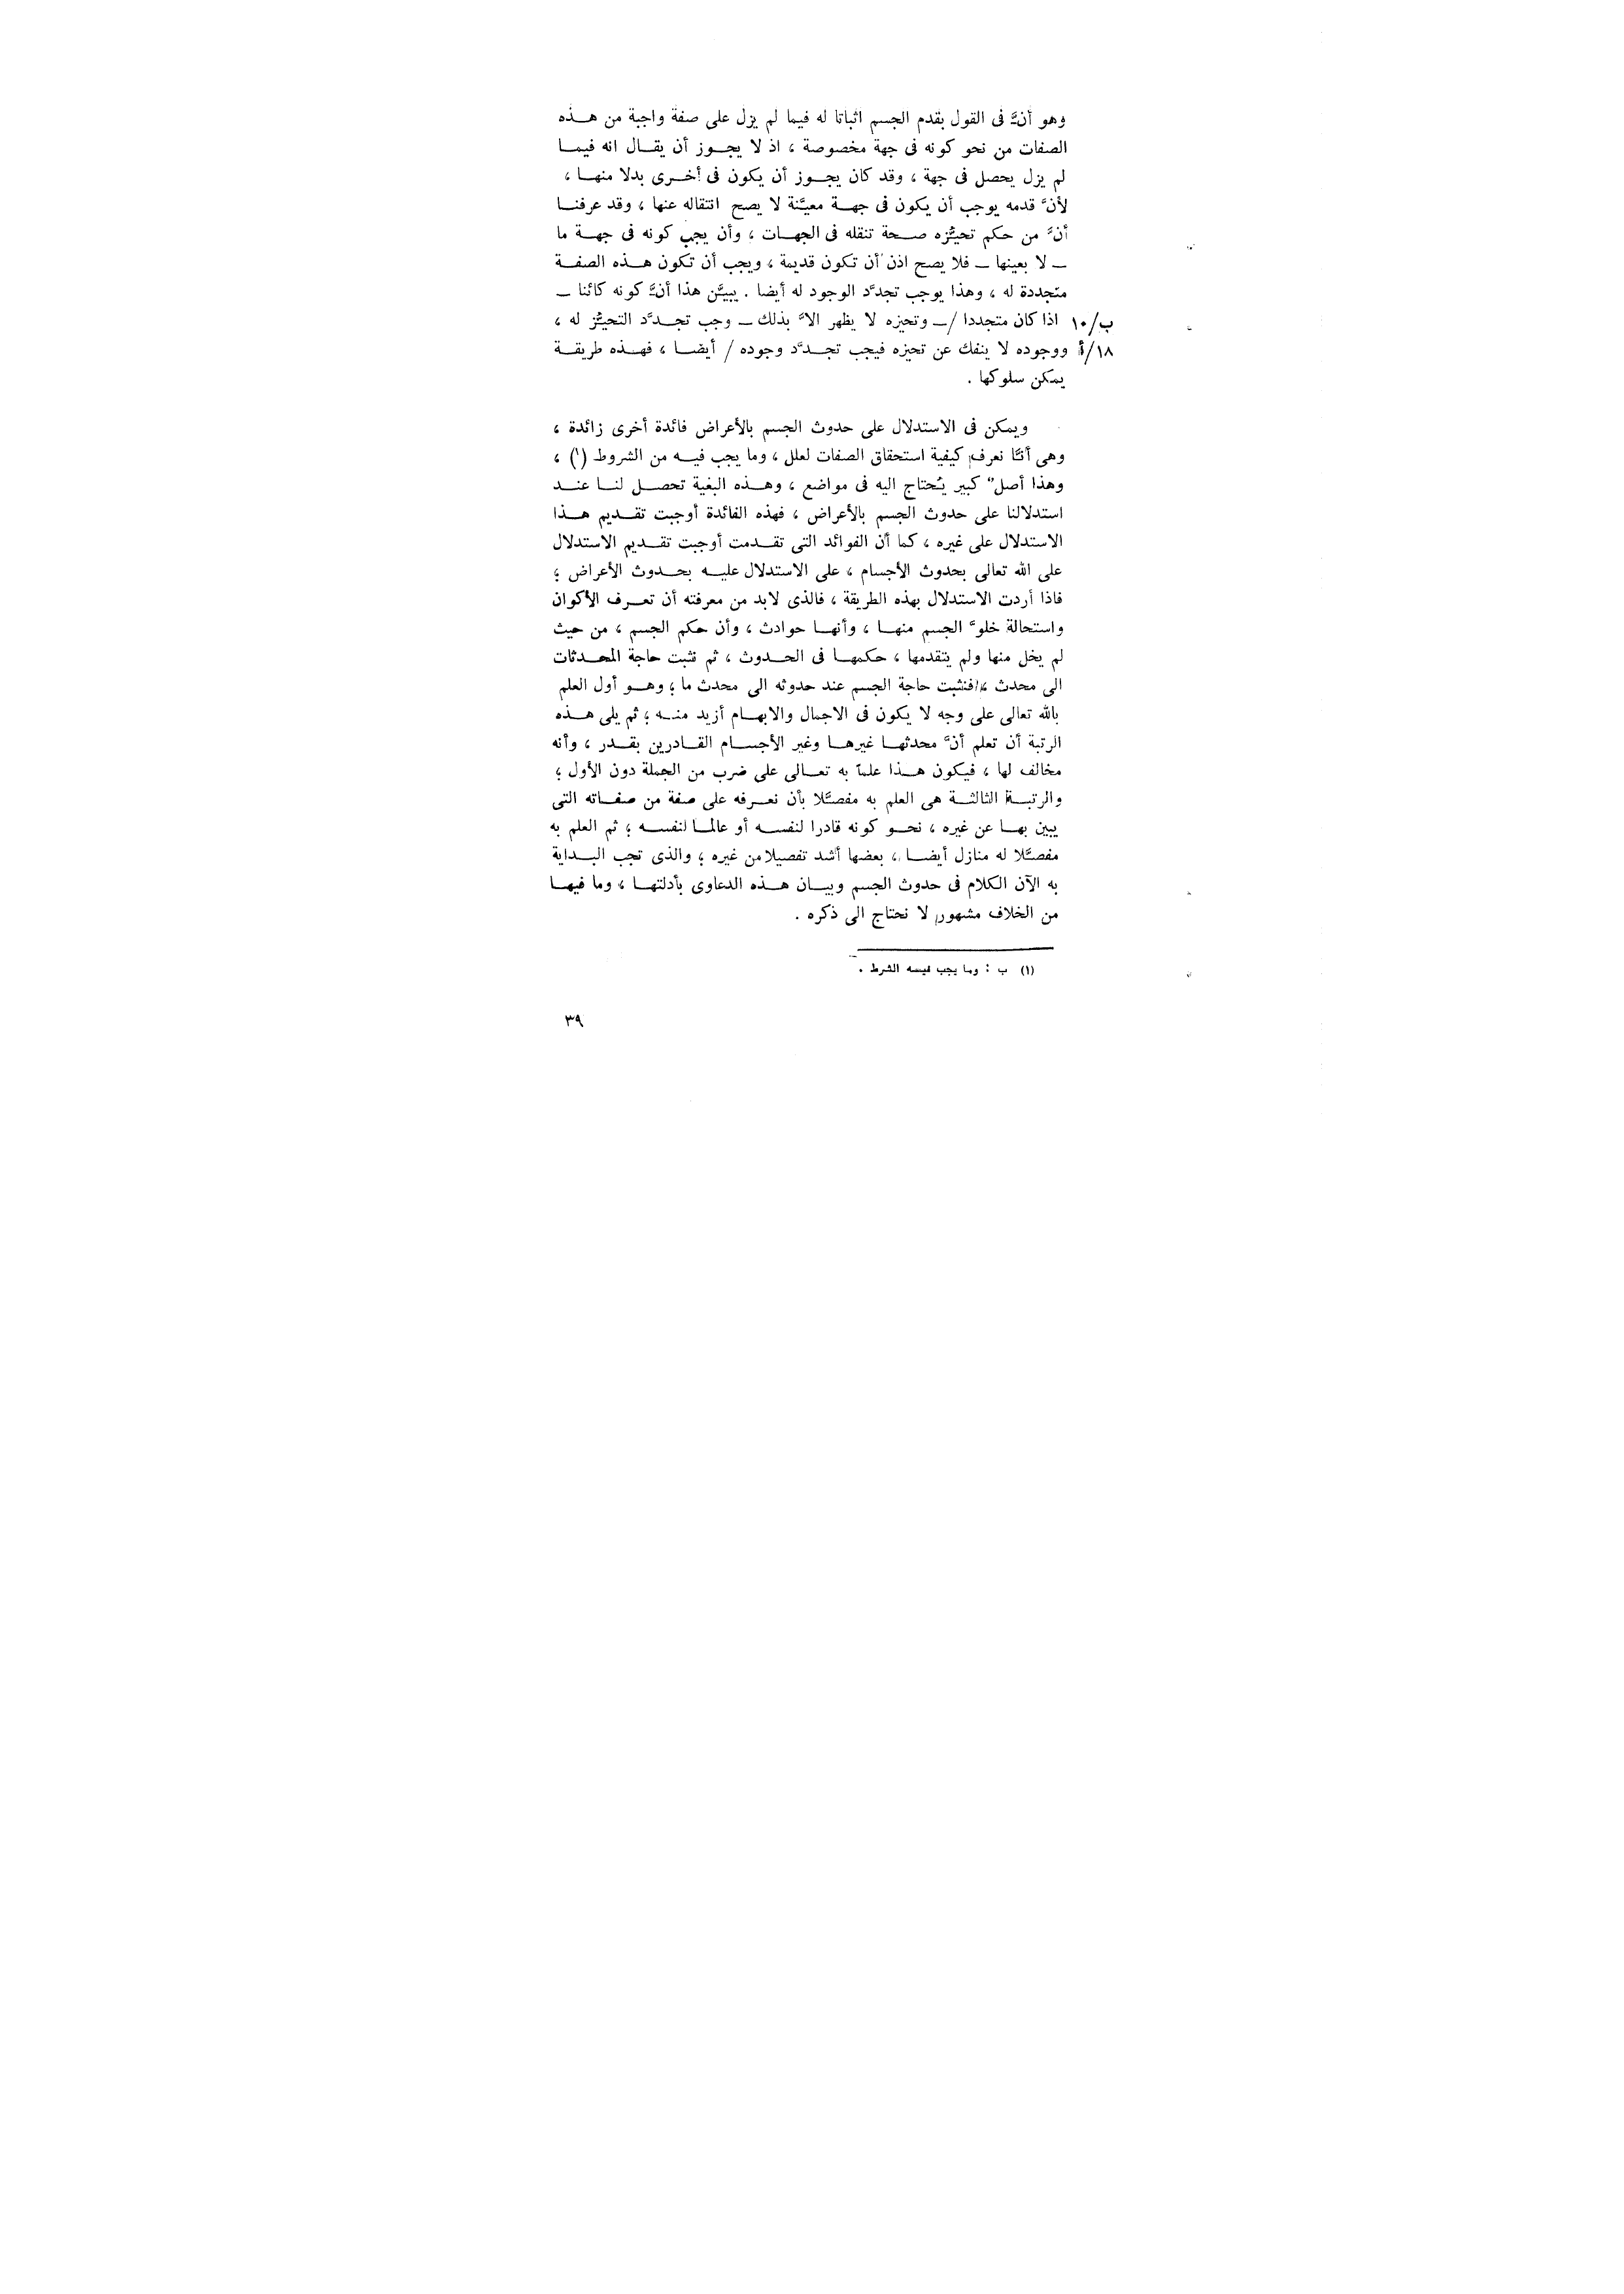 وهو أنَّ فى القول بقدم الجسم اثباتا له فيما لم يزل على صفة واجبة من هـــذه
الصفات من نحو كونه فى جهة مخصوصة ، اذ لا يجــوز أن يقــال انه فيمــا
لم يزل يحصل فى جهة ، وقد كان يجــوز أن يكون فى أخــرى بدلا منهــا ،
لأنَّ قدمه يوجب أن يكون فى جهــة معيَّنة لا يصح انتقاله عنها ، وقد عرفنــا
أنَّ من حكم تحيُّزه صــحة تنقله فى الجهــات ، وأن يجب كونه فى جهــة ما
ــ لا بعينها ــ فلا يصح اذن أن تكون قديمة ، ويجب أن تكون هــذه الصفــة
متجددة له ، وهذا يوجب تجدَّد الوجود له أيضا . يبيَّن هذا أنَّ كونه كائنا ــ
ب/١٠ اذا كان متجددا /ــ وتحيزه لا يظهر الاَّ بذلك ــ وجب تجــدَّد التحيُّز له ،
١٨/أ ووجوده لا ينفك عن تحيزه فيجب تجــدَّد وجوده / أيضــا ، فهــذه طريقــة
يمكن سلوكها .
ويمكن فى الاستدلال على حدوث الجسم بالأعراض فائدة أخرى زائدة ،
وهى أنَّا نعرف كيفية استحقاق الصفات لعلل ، وما يجب فيــه من الشروط (١) ،
وهذا أصلٌ كبير يُحتاج اليه فى مواضع ، وهــذه البغية تحصــل لنــا عنــد
استدلالنا على حدوث الجسم بالأعراض ، فهذه الفائدة أوجبت تقــديم هــذا
الاستدلال على غيره ، كما أن الفوائد التى تقــدمت أوجبت تقــديم الاستدلال
على الله تعالى بحدوث الأجسام ، على الاستدلال عليــه بحــدوث الأعراض ؛
فاذا أردت الاستدلال بهذه الطريقة ، فالذى لابد من معرفته أن تعــرف الأكوان
واستحالة خلوَّ الجسم منهــا ، وأنهــا حوادث ، وأن حكم الجسم ، من حيث
لم يخل منها ولم يتقدمها ، حكمهــا فى الحــدوث ، ثم نثبت حاجة المحــدثات
الى محدث ، فنثبت حاجة الجسم عند حدوثه الى محدث ما ؛ وهــو أول العلم
بالله تعالى على وجه لا يكون فى الاجمال والابهــام أزيد منــه ؛ ثم يلى هــذه
الرتبة أن تعلم أنَّ محدثهــا غيرهــا وغير الأجســام القــادرين بقــدر ، وأنه
مخالف لها ، فيكون هــذا علماً به تعــالى على ضرب من الجملة دون الأول ؛
والرتبــة الثالثــة هى العلم به مفصَّلا بأن نعــرفه على صفة من صفــاته التى
يبين بهــا عن غيره ، نحــو كونه قادرا لنفســه أو عالمــا لنفســه ؛ ثم العلم به
مفصَّلا له منازل أيضــا ، بعضها أشد تفصيلا من غيره ؛ والذى تجب البــداية
به الآن الكلام فى حدوث الجسم وبيــان هــذه الدعاوى بأدلتهــا ، وما فيهــا
من الخلاف مشهور لا نحتاج الى ذكره .
(١) ب : وما يجب فيــه الشرط .
٣٩